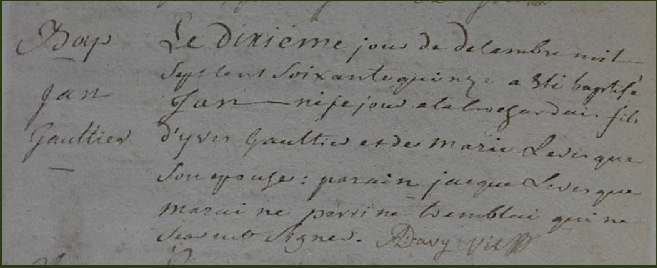 Bap
jan
Gaultier
Le dixiéme jour de desambre mil
sept cent soixante quinze a eté baptisé
jan né ce jour a la fils
d'yves Gaultier et de marie Levesque
son epouse: parain jacque Levesque
maraine perrine tremblai qui ne
savent signer. Davy